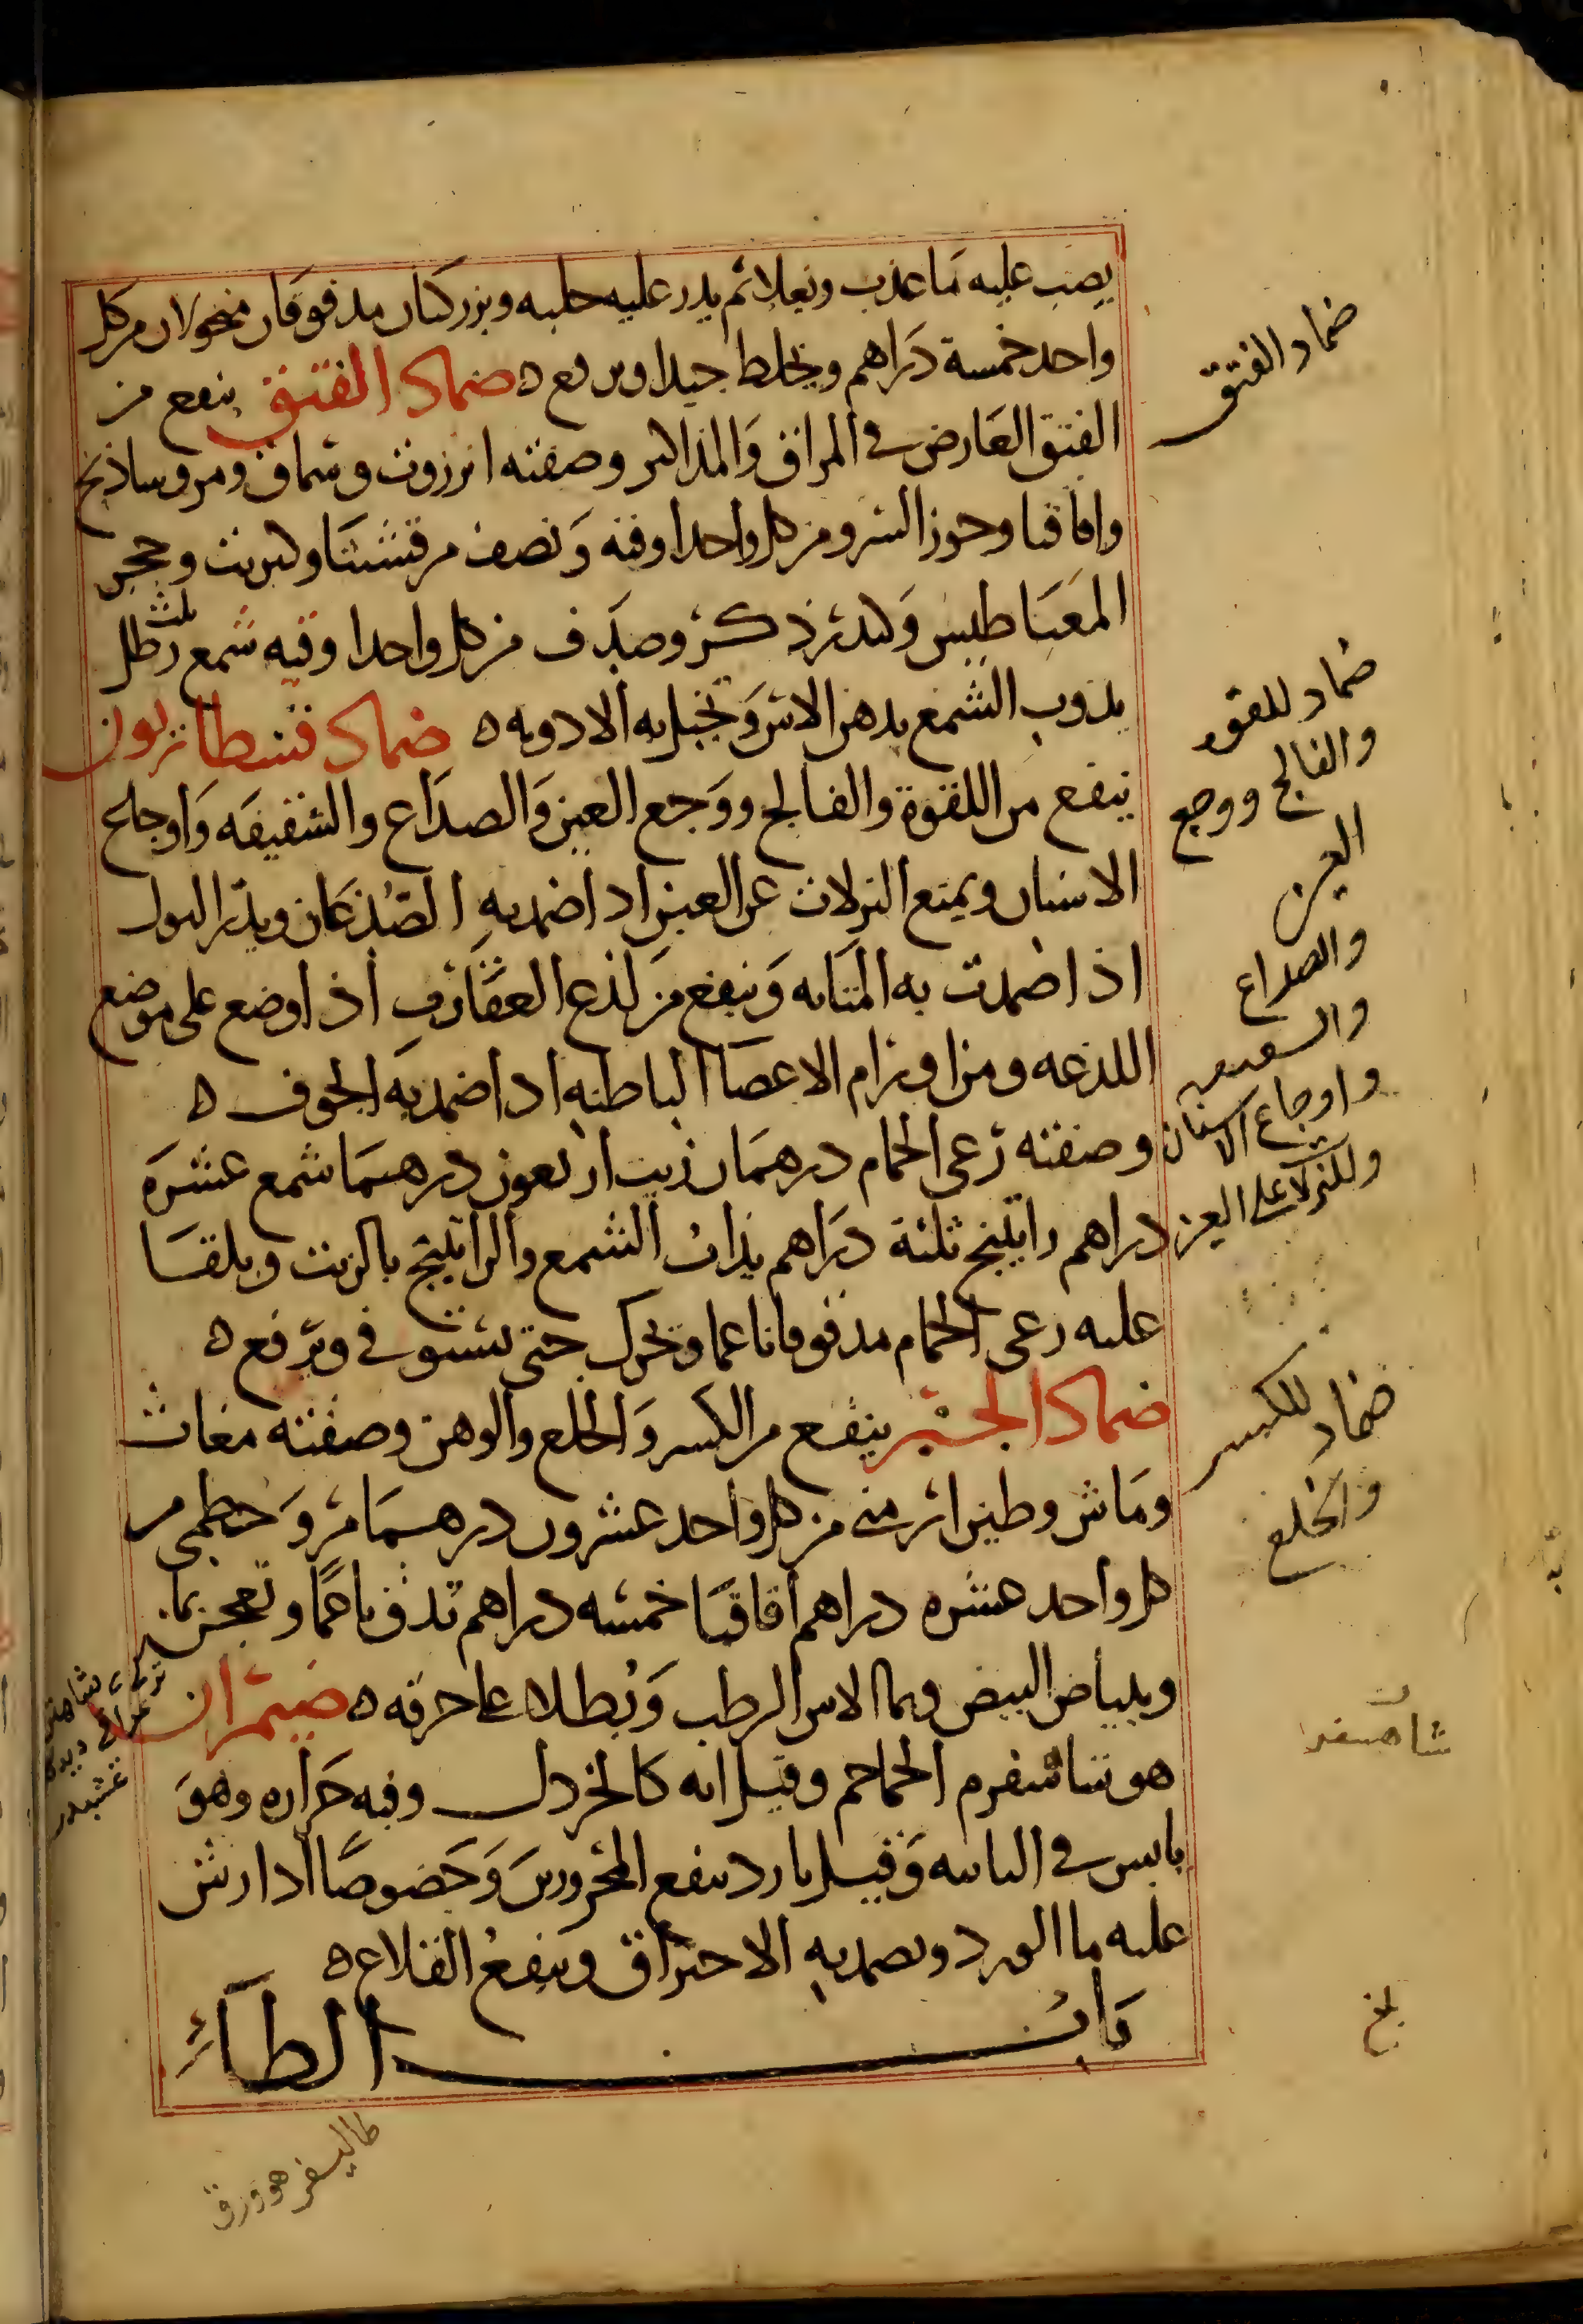 يصب عليه ما عذب ويغلا ثم يذر عليه حلبه وبزر كتان مدقوقان منخولان من كل
واحد خمسة دراهم ويخلط جيدا ويرفع ه ضماد الفتق ينفع من
الفتق العارض في المراق والمذاكير وصفته انزروت وسماق ومر وساذنج
واقاقيا وجوز السرو من كل واحد اوقيه ونصف مرقشيثا وكبريت وحجر
المغناطيس وكندر ذكر وصدف من كل واحد اوقيه شمع ثلث رطل
يذوب الشمع بدهن الاس وتجبل به الادويه ه ضماد قنطاريون
ينفع من اللقوة والفالج ووجع العين والصداع والشقيقه واوجاع
الاسنان ويمنع النزلات عن العين اذا ضمد به الصدغان ويدر البول
اذا ضمدت به المثانه وينفع من لذع العقارب اذا وضع على موضع
اللذعه ومن اورام الاعضا الباطنه اذا ضمد به الجوف ه
وصفته رعى الحمام درهمان زيت اربعون درهما شمع عشره
دراهم راتينج ثلثة دراهم يذاب الشمع والراتينج بالزيت ويلقا
عليه رعى الحمام مدقوقا ناعما ويحرك حتى يستوفى ويرفع ه
ضماد الجبر ينفع من الكسر والخلع والوهن وصفته مغاث
وماش وطين ارمنى من كل واحد عشرون درهما مر وخطمى من
كل واحد عشره دراهم اقاقيا خمسه دراهم تدق ناعما وتعجن بما
وببياض البيض وبما الاس الرطب ويطلا على خرقه ه ضيمران
هو شاشفرم الحماحم وقيل انه كالخردل وفيه حراره وهو
يابس في الثانيه وقيل بارد ينفع المحرورين وخصوصا اذا رش
عليه ما الورد ويضمد به الاحتراق وينفع القلاع ه
باب الطآء
ضماد الفتق
ضماد للقوه
والفالج ووجع
العين
والصداع
والشقيقه
واوجاع الاسنان
وللنزلات على العين
ضماد للكسر
والخلع
شاهسفر
بلغ
طاليسفر هو ورق